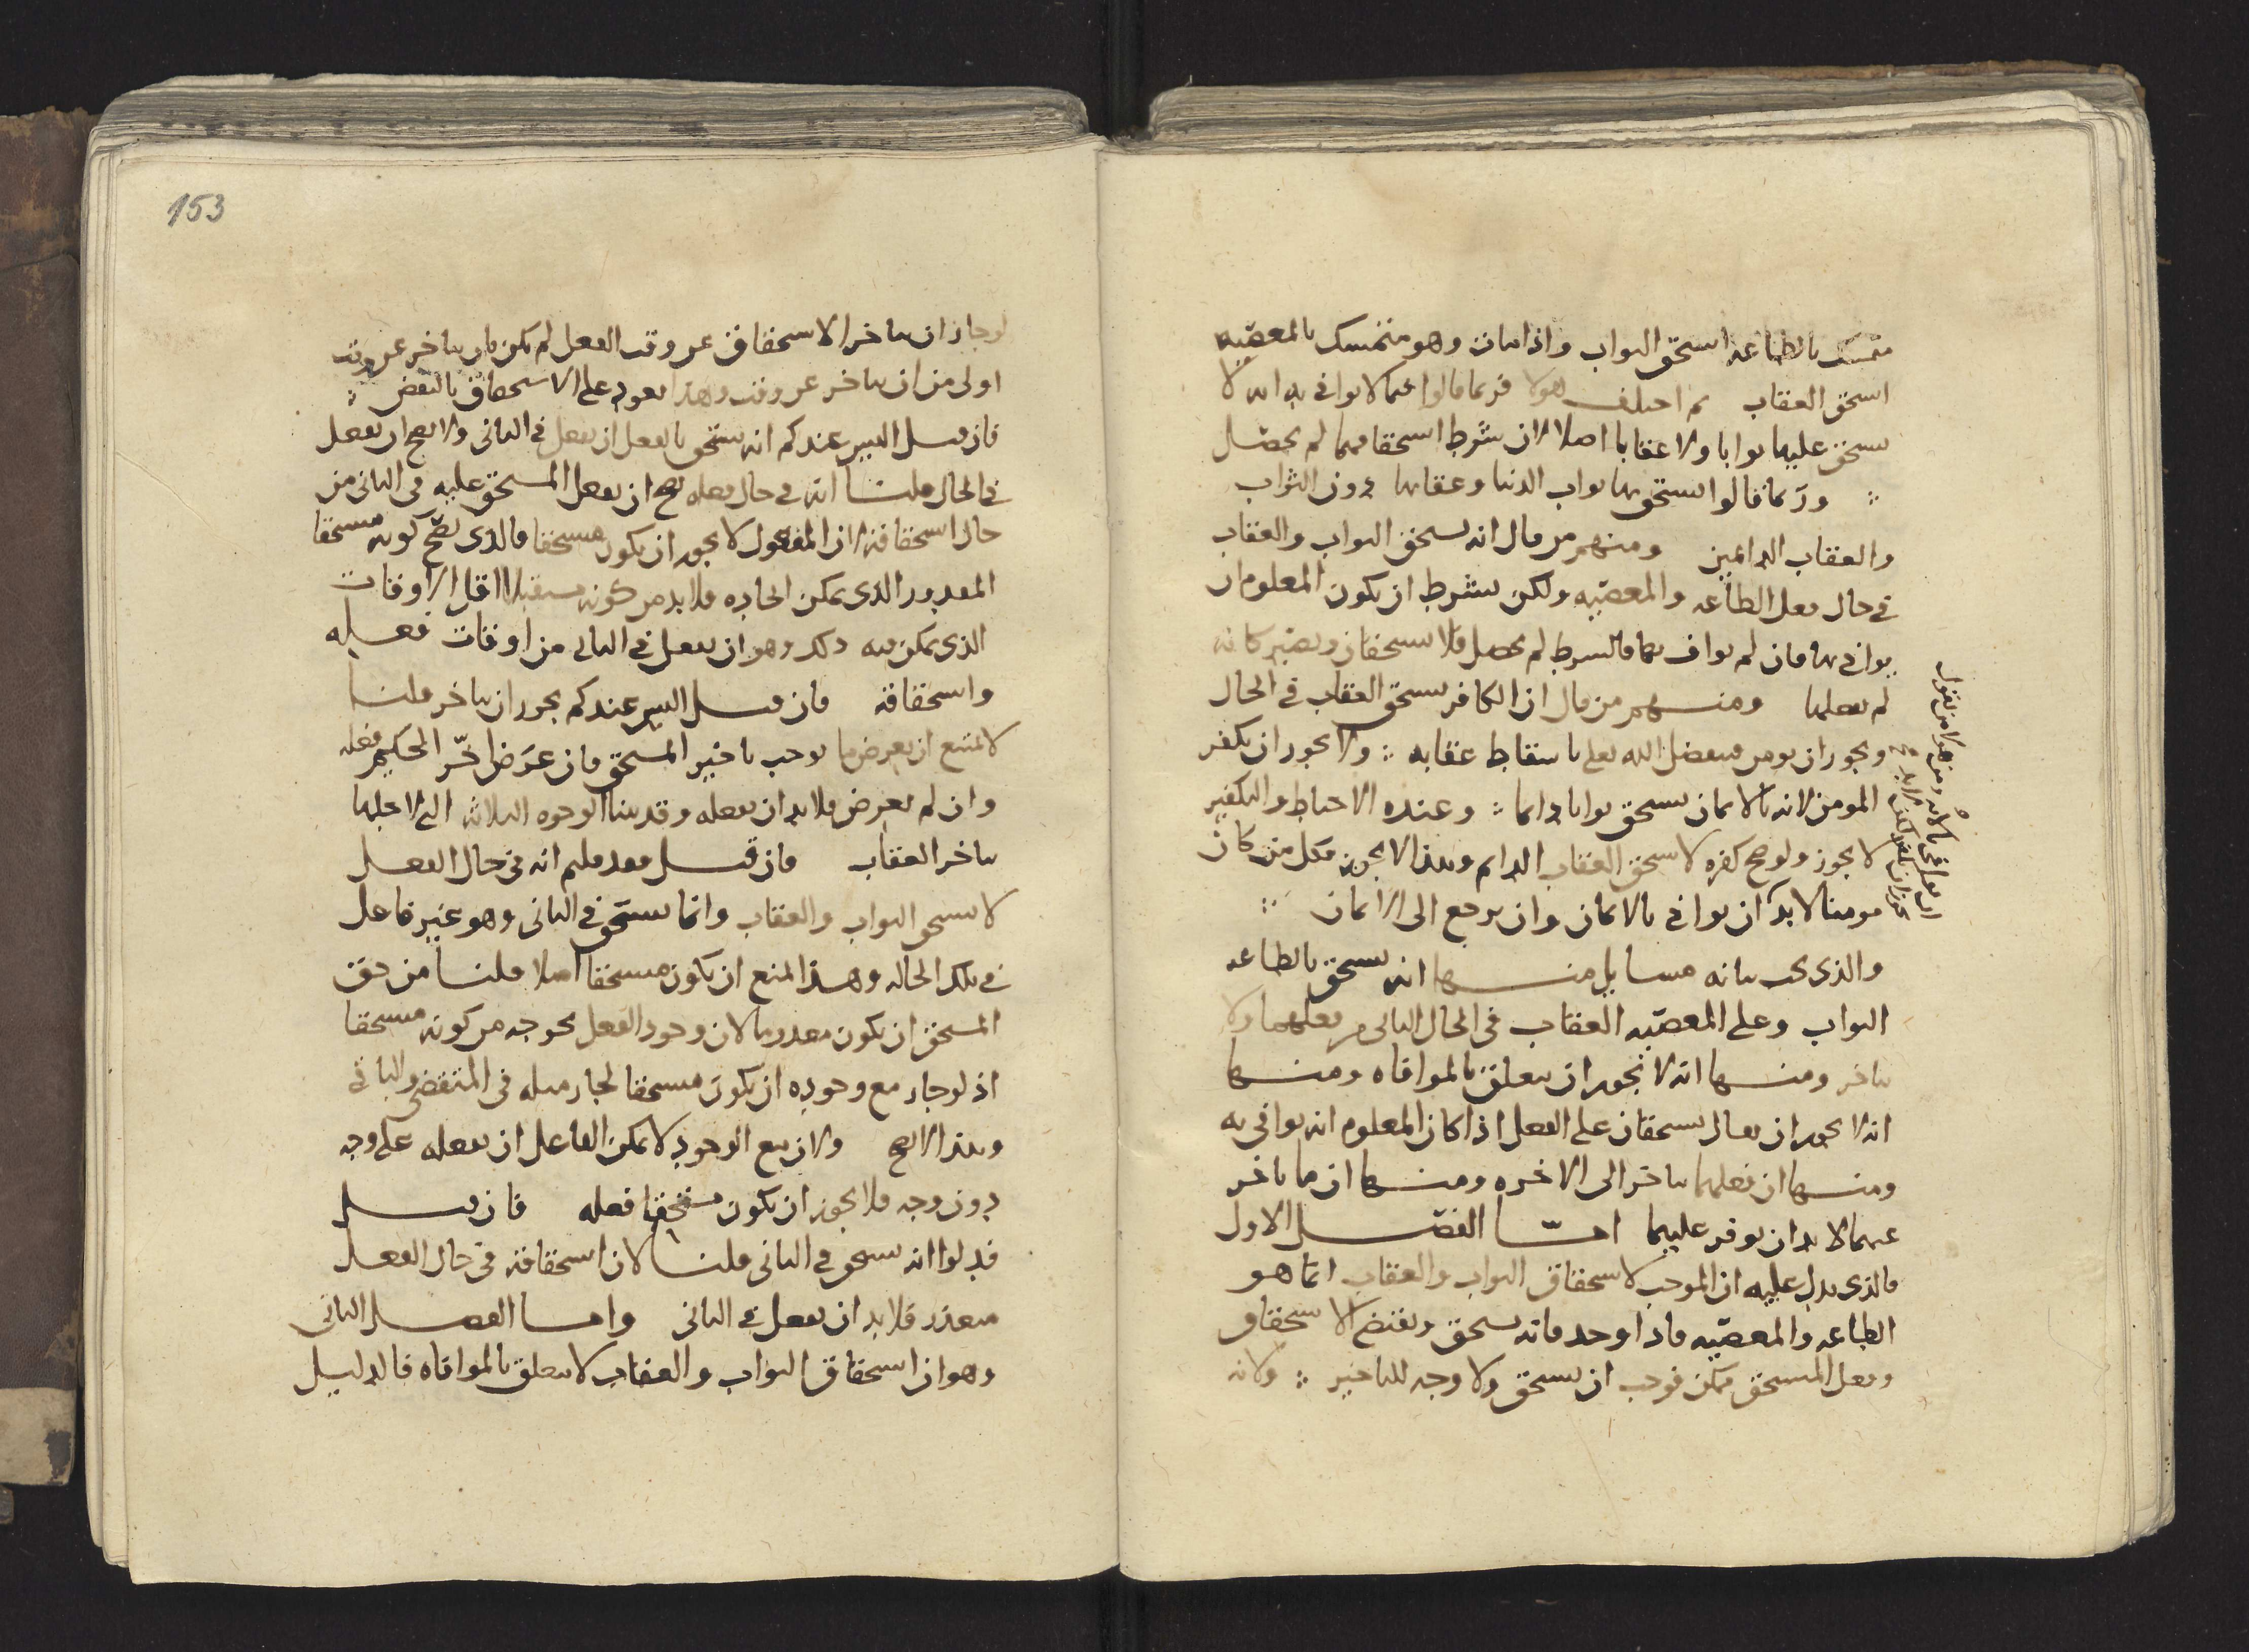 متمسك بالطاعه استحق الثواب واذا مات وهو متمسك بالمعصيه
استحق العقاب ثم اختلف هولا فربما قالوا فيما لا يوافى به انه لا
يستحق عليها ثوابا ولا عقابا اصلا لان شرط استحقاقهما لم يحصل
وربما قالوا يستحق بها ثواب الدنيا وعقابها دون الثواب
والعقاب الدائمين ومنهم من قال انه يستحق الثواب والعقاب
في حال فعل الطاعه والمعصيه ولكن بشرط ان يكون المعلوم ان
يوافى بها فان لم يواف بهما فالشرط لم يحصل فلا يستحقان ويصير كانه
لم يفعلها ومنهم من قال ان الكافر يستحق العقاب في الحال
ويجوز ان يومن فيتفضل الله تعلى باسقاط عقابه ولا يجوز ان يكفر
المومن لانه بالايمان يستحق ثوابا دايما وعنده الاحباط والتكفير
لا يجوز ولو صح كفره لاستحق العقاب الدايم وهذا لا يجوز فكل من كان
مومنا لا بد ان يوافى بالايمان وان يرجع الى الايمان
والذي يجب بيانه مسايل منها انه يستحق بالطاعه
الثواب وعلى المعصيه العقاب في الحال الثاني من فعلهما ولا
يتاخر ومنها انه لا يجوز ان يتعلق بالموافاه ومنها
انه لا يجوز ان يقال يستحقان على الفعل اذا كان المعلوم انه يوافى به
ومنها ان فعلهما يتاخر الى الاخره ومنها ان ما تاخر
عنهما لا بد ان يوفر عليهما امّا الفصل الاول
فالذي يدل عليه ان الموجب لاستحقاق الثواب والعقاب انما هو
الطاعه والمعصيه فاذا وجد فانه يستحق ويقتضى الاستحقاق
وفعل المستحق ممكن فوجب ان يستحق ولا وجه للتاخير ولانه
ومن هولا من يقول
153
لو جاز ان يتاخر الاستحقاق عن وقت الفعل لم يكن بان يتاخر عن وقت
اولى من ان يتاخر عن وقت وهذا يعود على الاستحقاق بالنقض
فان قيل اليس عندكم انه يستحق بالفعل ان يفعل في الثاني ولا يصح ان يفعل
في الحال قلنا انه في حال فعله يصح ان يفعل المستحق عليه في الثاني من
حال استحقاقه لان المفعول لا يجوز ان يكون مستحقا فالذي يصح كونه مستحقا
المقدور الذي يمكن ايجاده فلا بد من كونه مستقبلا اقل الاوقات
الذي يمكن فيه ذلك وهو ان يفعل في الثاني من اوقات فعله
واستحقاقه فان قيل اليس عندكم يجوز ان يتاخر قلنا
لا يمتنع ان يعرض ما يوجب تاخير المستحق فان عرض اخّر الحكيم فعله
وان لم يعرض فلا بد ان يفعله وقد بينا الوجوه الثلاثه التي لاجلها
يتاخر العقاب فان قيل فقد قلتم انه في حال الفعل
لا يستحق الثواب والعقاب وانما يستحق في الثاني وهو غير فاعل
في تلك الحاله وهذا يمنع ان يكون مستحقا اصلا قلنا من حق
المستحق ان يكون معدوما لان وجود الفعل يخرجه من كونه مستحقا
اذ لو جاز مع وجوده ان يكون مستحقا لجاز مثله في المتقضى والباقي
وهذا لا يصح ولان مع الوجود لا يمكن الفاعل ان يفعله على وجه
دون وجه فلا يجوز ان يكون مستحقا فعله فان قيل
قد قلوا انه يستحق في الثاني قلنا لان استحقاقه في حال الفعل
متعذر فلا بد ان يفعل في الثاني وامّا الفصل الثاني
وهو ان استحقاق الثواب والعقاب لا يتعلق بالموافاه فالدليل